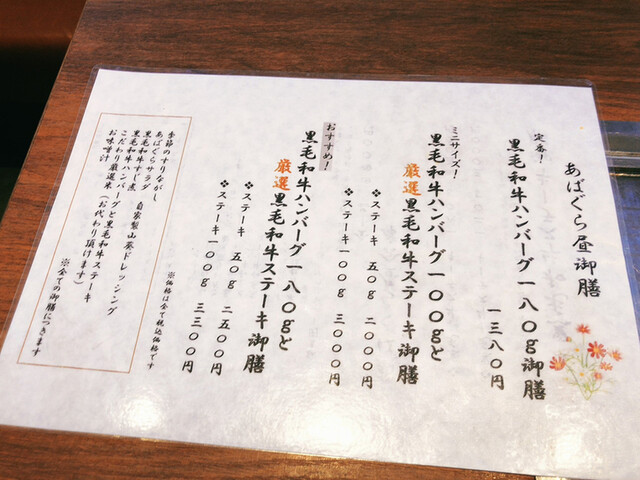 あばぐら昼御膳
定番！
黒毛和牛ハンバーグ一八〇g御膳
一三八〇円
ミニサイズ！
黒毛和牛ハンバーグ一〇〇gと
厳選黒毛和牛ステーキ御膳
❖ステーキ 五〇g 二〇〇〇円
❖ステーキ一〇〇g 三〇〇〇円
おすすめ！
黒毛和牛ハンバーグ一八〇gと
厳選黒毛和牛ステーキ御膳
❖ステーキ 五〇g 二五〇〇円
❖ステーキ一〇〇g 三三〇〇円
※価格は全て税込価格です
季節のすりながし
あばぐらサラダ 自家製山葵ドレッシング
黒毛和牛すじ煮
黒毛和牛ハンバーグと黒毛和牛ステーキ
こだわり厳選米（お代わり頂けます）
お味噌汁
※全ての御膳につきます